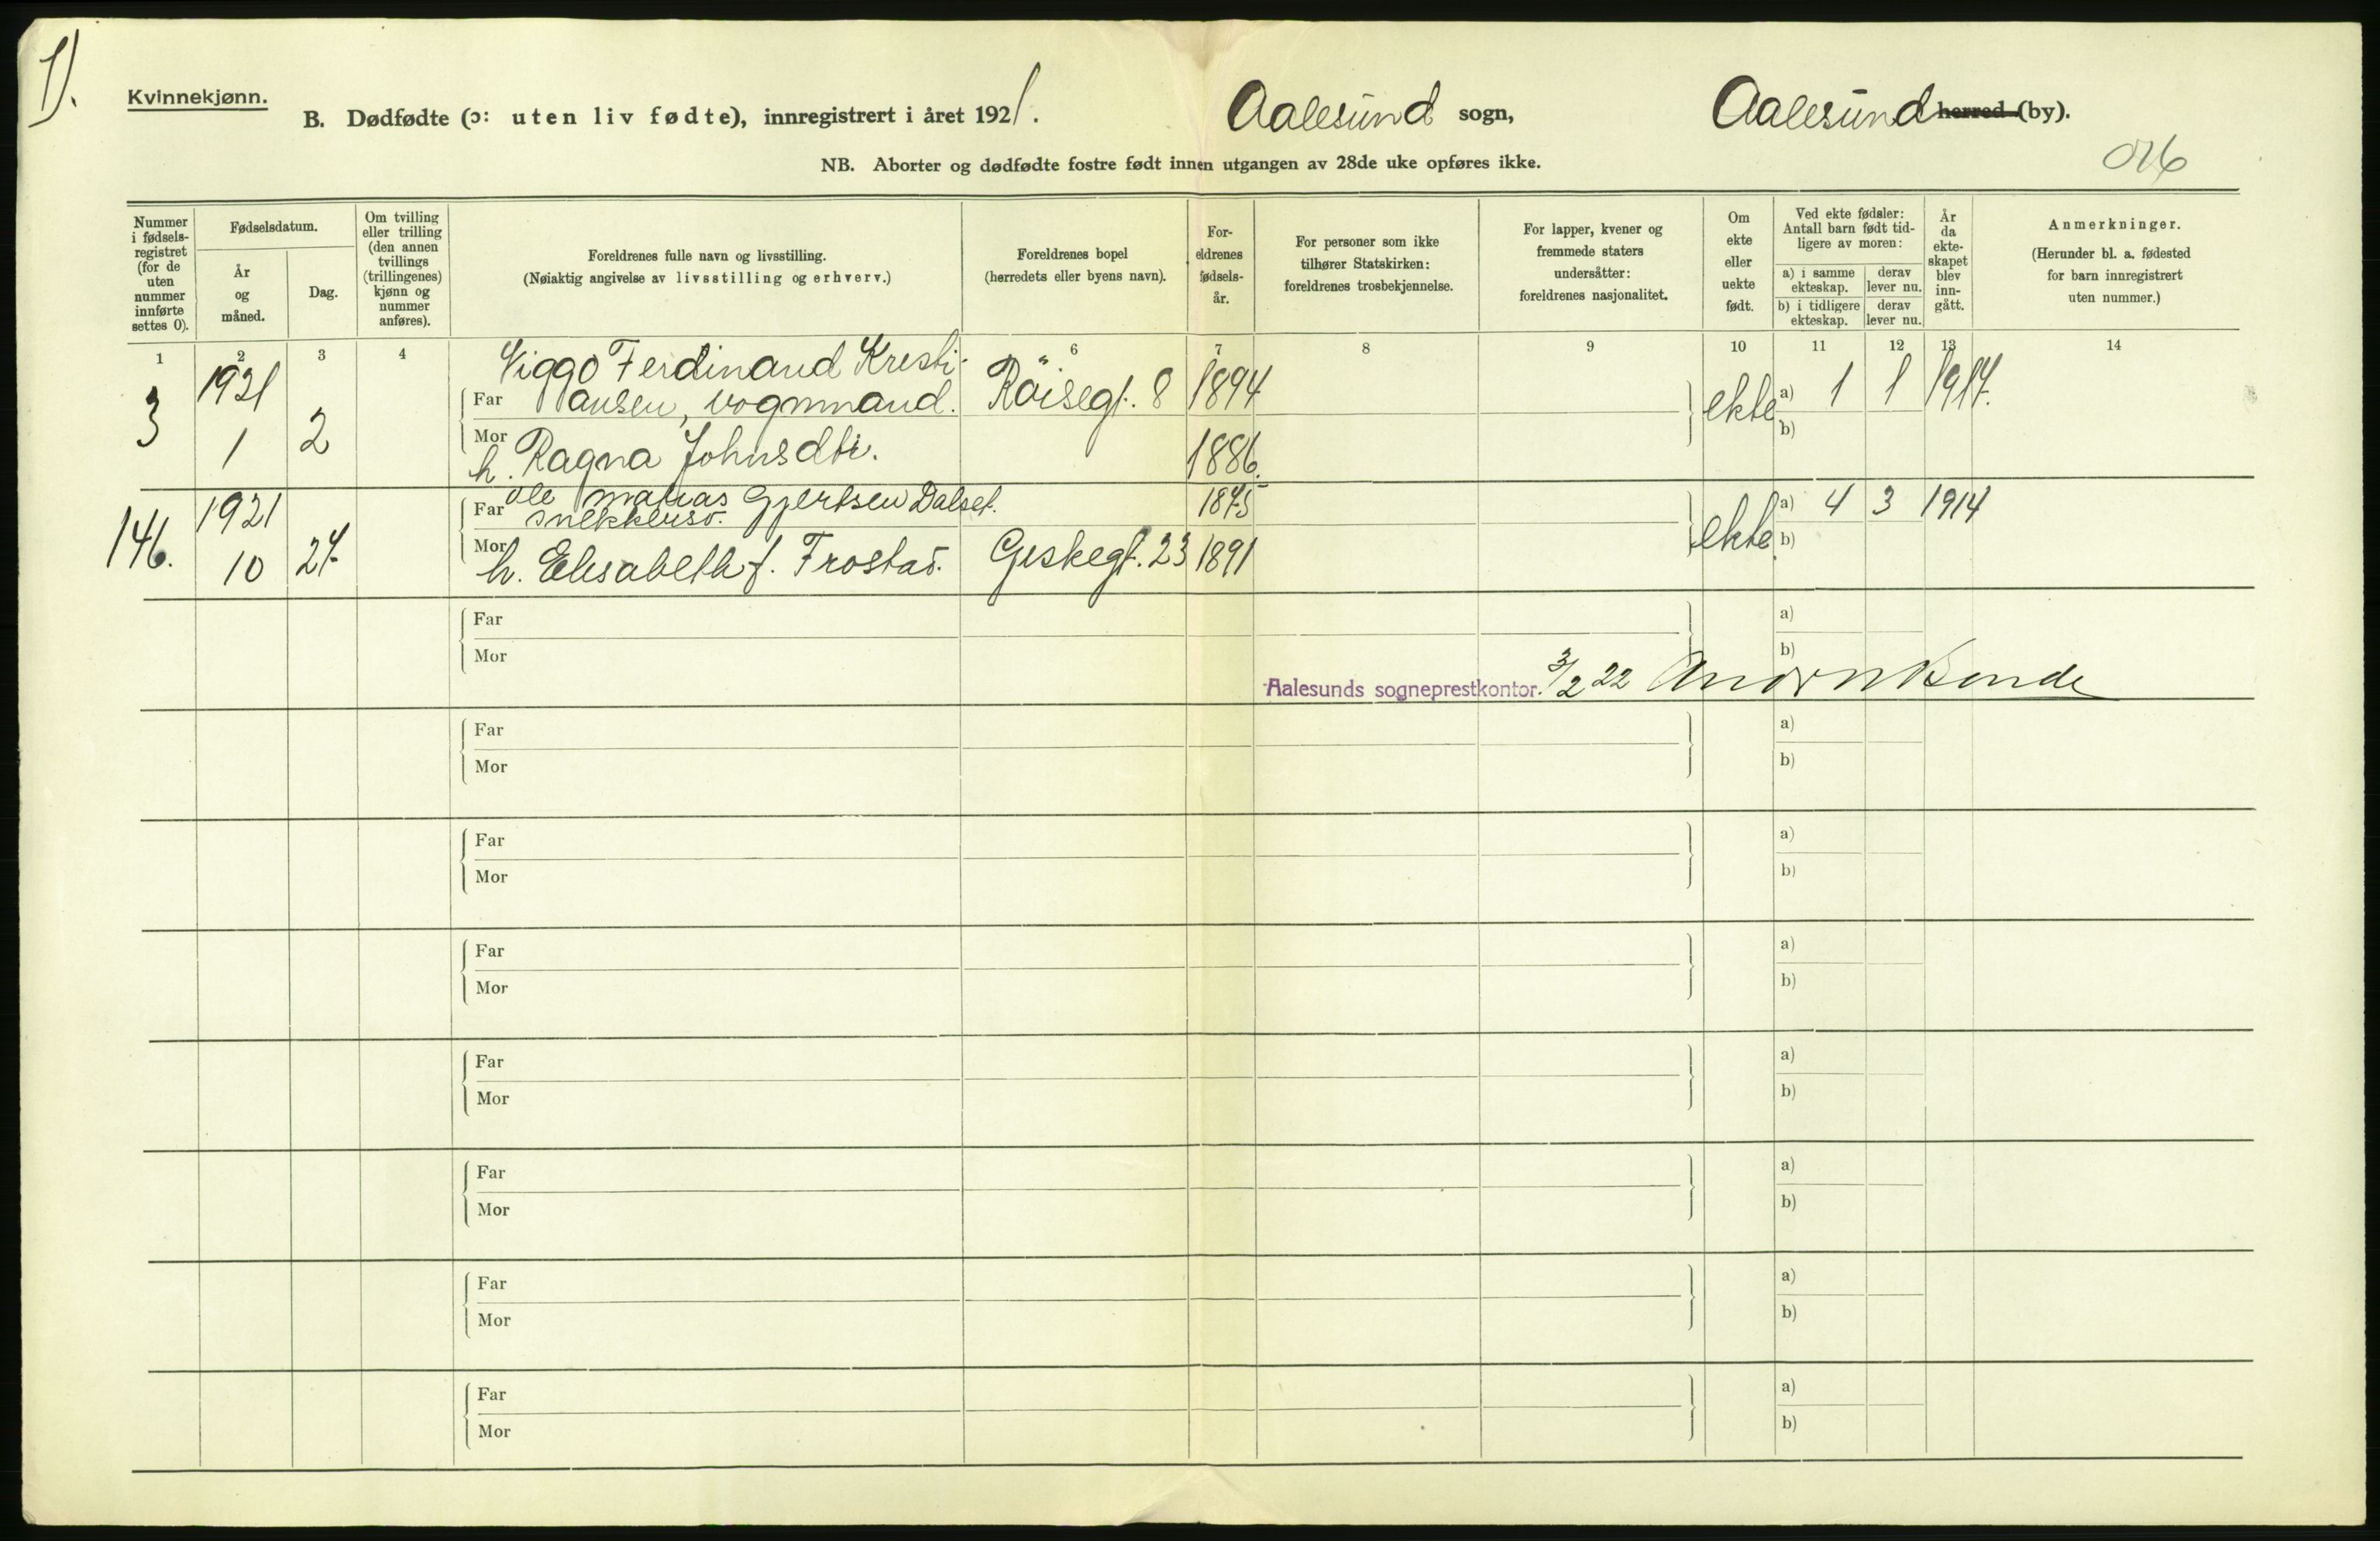 1).
Kvinnekjønn.
B. Dødfødte (ɔ: uten liv fødte), innregistrert i året 1921. Aalesund sogn, Aalesund herred (by).
NB. Aborter og dødfødte fostre født innen utgangen av 28de uke opføres ikke.
Nummer i fødsels-registret (for de uten nummer innførte settes 0).
Fødselsdatum.
År og måned.
Dag.
Om tvilling eller trilling (den annen tvillings (trillingenes) kjønn og nummer anføres).
Foreldrenes fulle navn og livsstilling.
(Nøiaktig angivelse av livsstilling og erhverv.)
Foreldrenes bopel
(herredets eller byens navn).
For-eldrenes fødsels-år.
For personer som ikke tilhører Statskirken: foreldrenes trosbekjennelse.
For lapper, kvener og fremmede staters undersåtter: foreldrenes nasjonalitet.
Om ekte eller uekte født.
Ved ekte fødsler: Antall barn født tid-ligere av moren:
a) i samme ekteskap.
derav lever nu.
b) i tidligere ekteskap.
derav lever nu.
År da ekte-skapet blev inn-gått.
Anmerkninger.
(Herunder bl. a. fødested for barn innregistrert uten nummer.)
1 2 3 4 6 7 8 9 10 11 12 13 14
Viggo Ferdinand Kristi-
3 1921 Far Hansen, vognmand. Röisegt. 8 1894 ekte a) 1 1 1917.
1 2 Mor h. Ragna Johnsdtr. 1886. b)
Ole Matias Gjertsen Dalset.
146. 1921 Far snekkersv. 1875 ekte a) 4 3 1914
10 27. Mor h. Elisabeth f. Frostad. Geskegt. 23 1891 b)
Far a)
Mor b)
Aalesunds sogneprestkontor. 3/2 22
Far a)
Mor b)
Far a)
Mor b)
Far a)
Mor b)
Far a)
Mor b)
Far a)
Mor b)
Far a)
Mor b)
Far a)
Mor b)